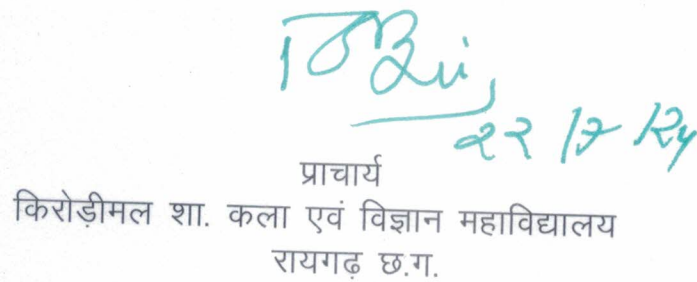 २२/७/24
प्राचार्य
किरोड़ीमल शा. कला एवं विज्ञान महाविद्यालय
रायगढ़ छ.ग.